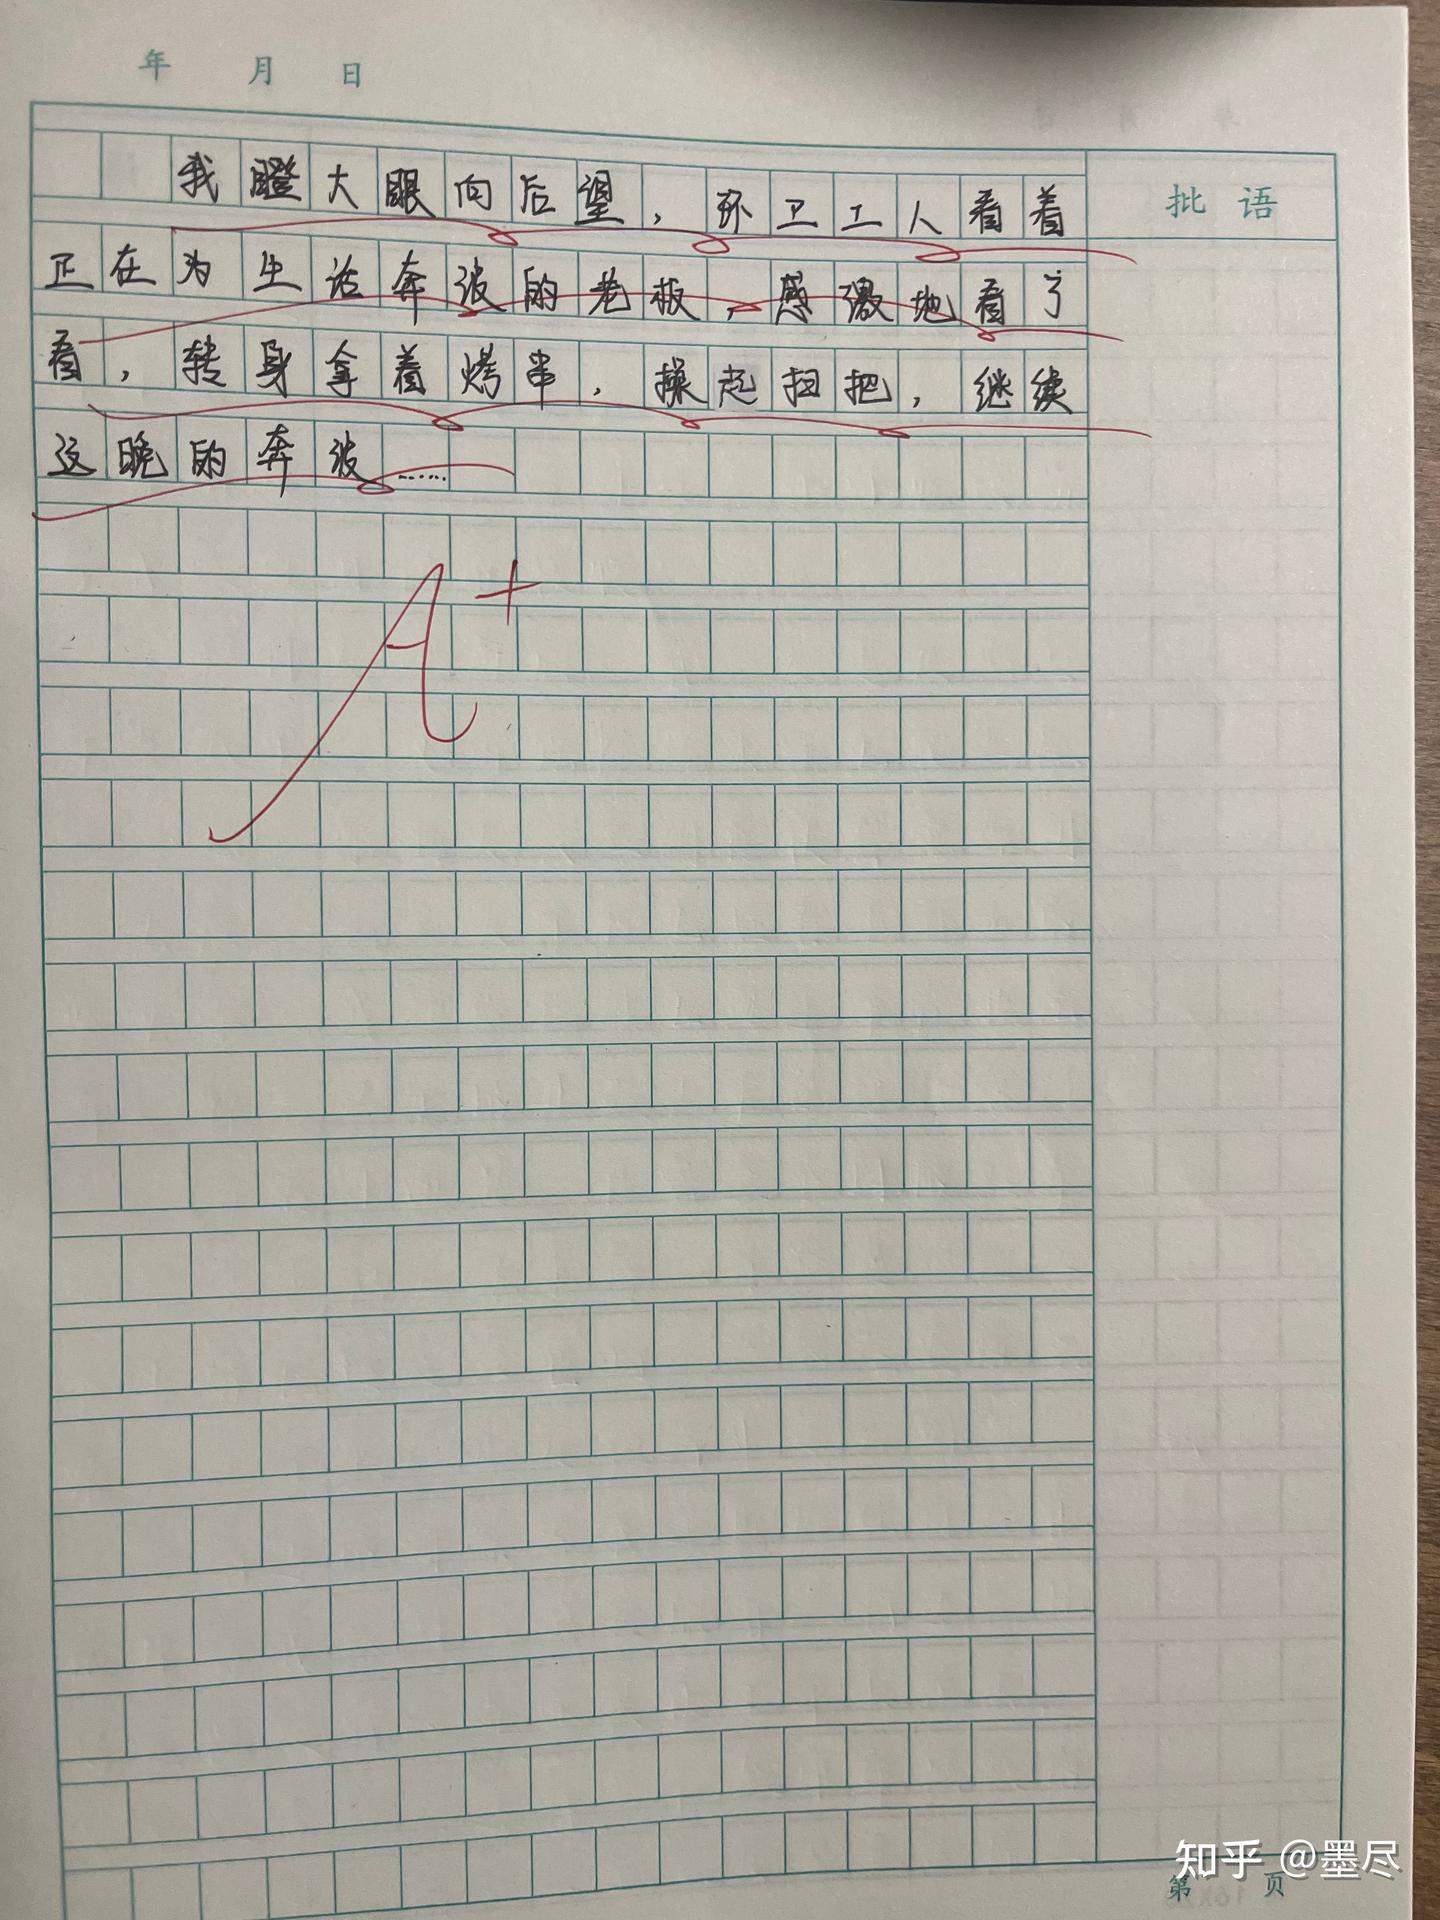 年 月 日
批语
我瞪大眼向后望，环卫工人看着
正在为生活奔波的老板，感激地看了
看，转身拿着烤串，操起扫把，继续
这晚的奔波……
A+
知乎 @墨尽
第 页